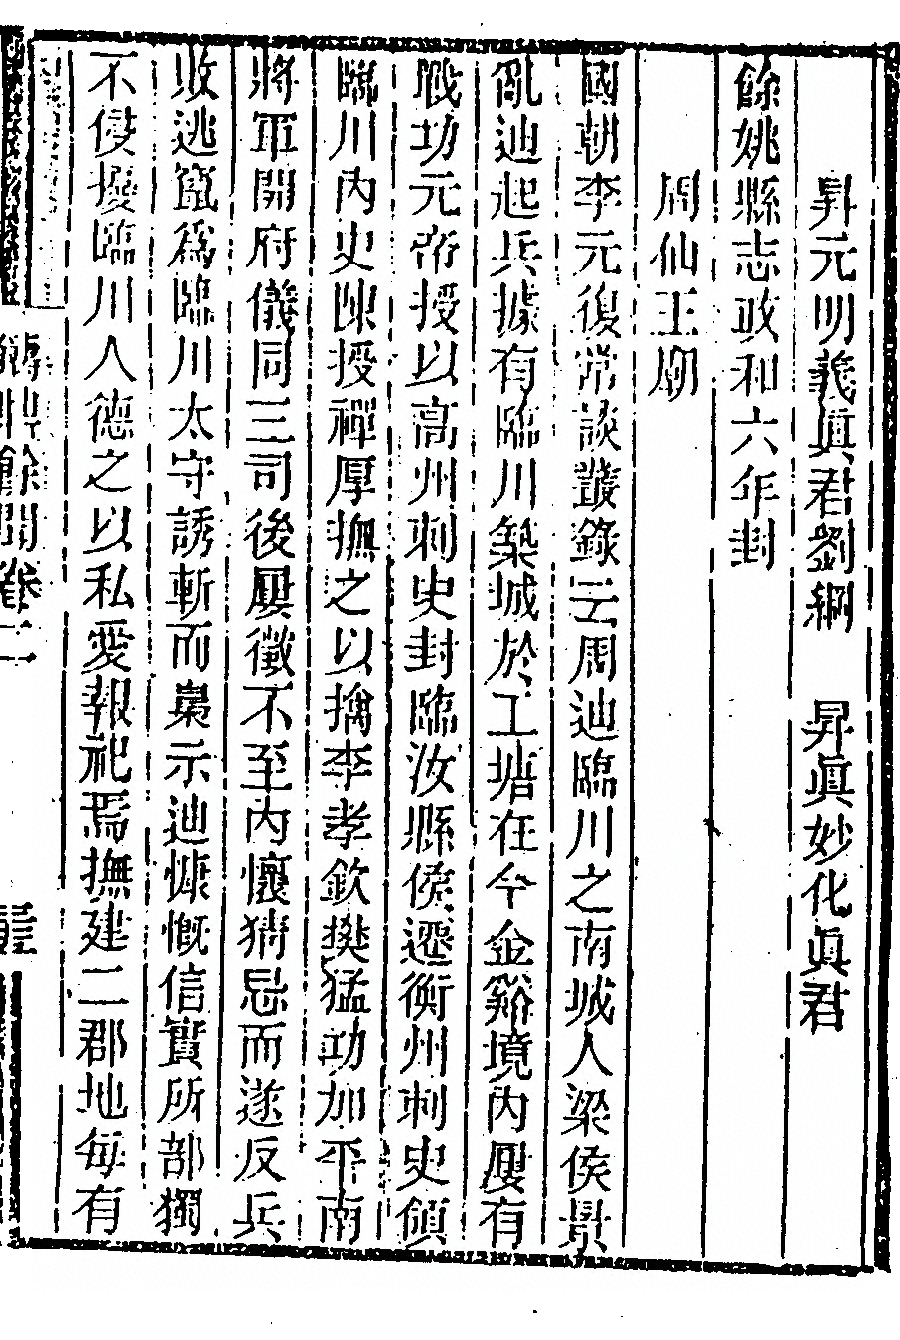 昇元明義眞君劉綱　昇眞妙化眞君
餘姚縣志政和六年封
周仙王廟
國朝李元復常談叢錄云周迪臨川之南城人梁侯景
亂迪起兵據有臨川築城於工塘在今金谿境內屢有
戰功元帝授以高州刺史封臨汝縣侯遷衡州刺史領
臨川內史陳授禪厚撫之以擒李孝欽樊猛功加平南
將軍開府儀同三司後屢徵不至內懷猜忌而遂反兵
敗逃竄爲臨川太守誘斬而梟示迪慷慨信實所部獨
不侵擾臨川人德之以私愛報祀焉撫建二郡地每有
鑄鼎餘聞卷二